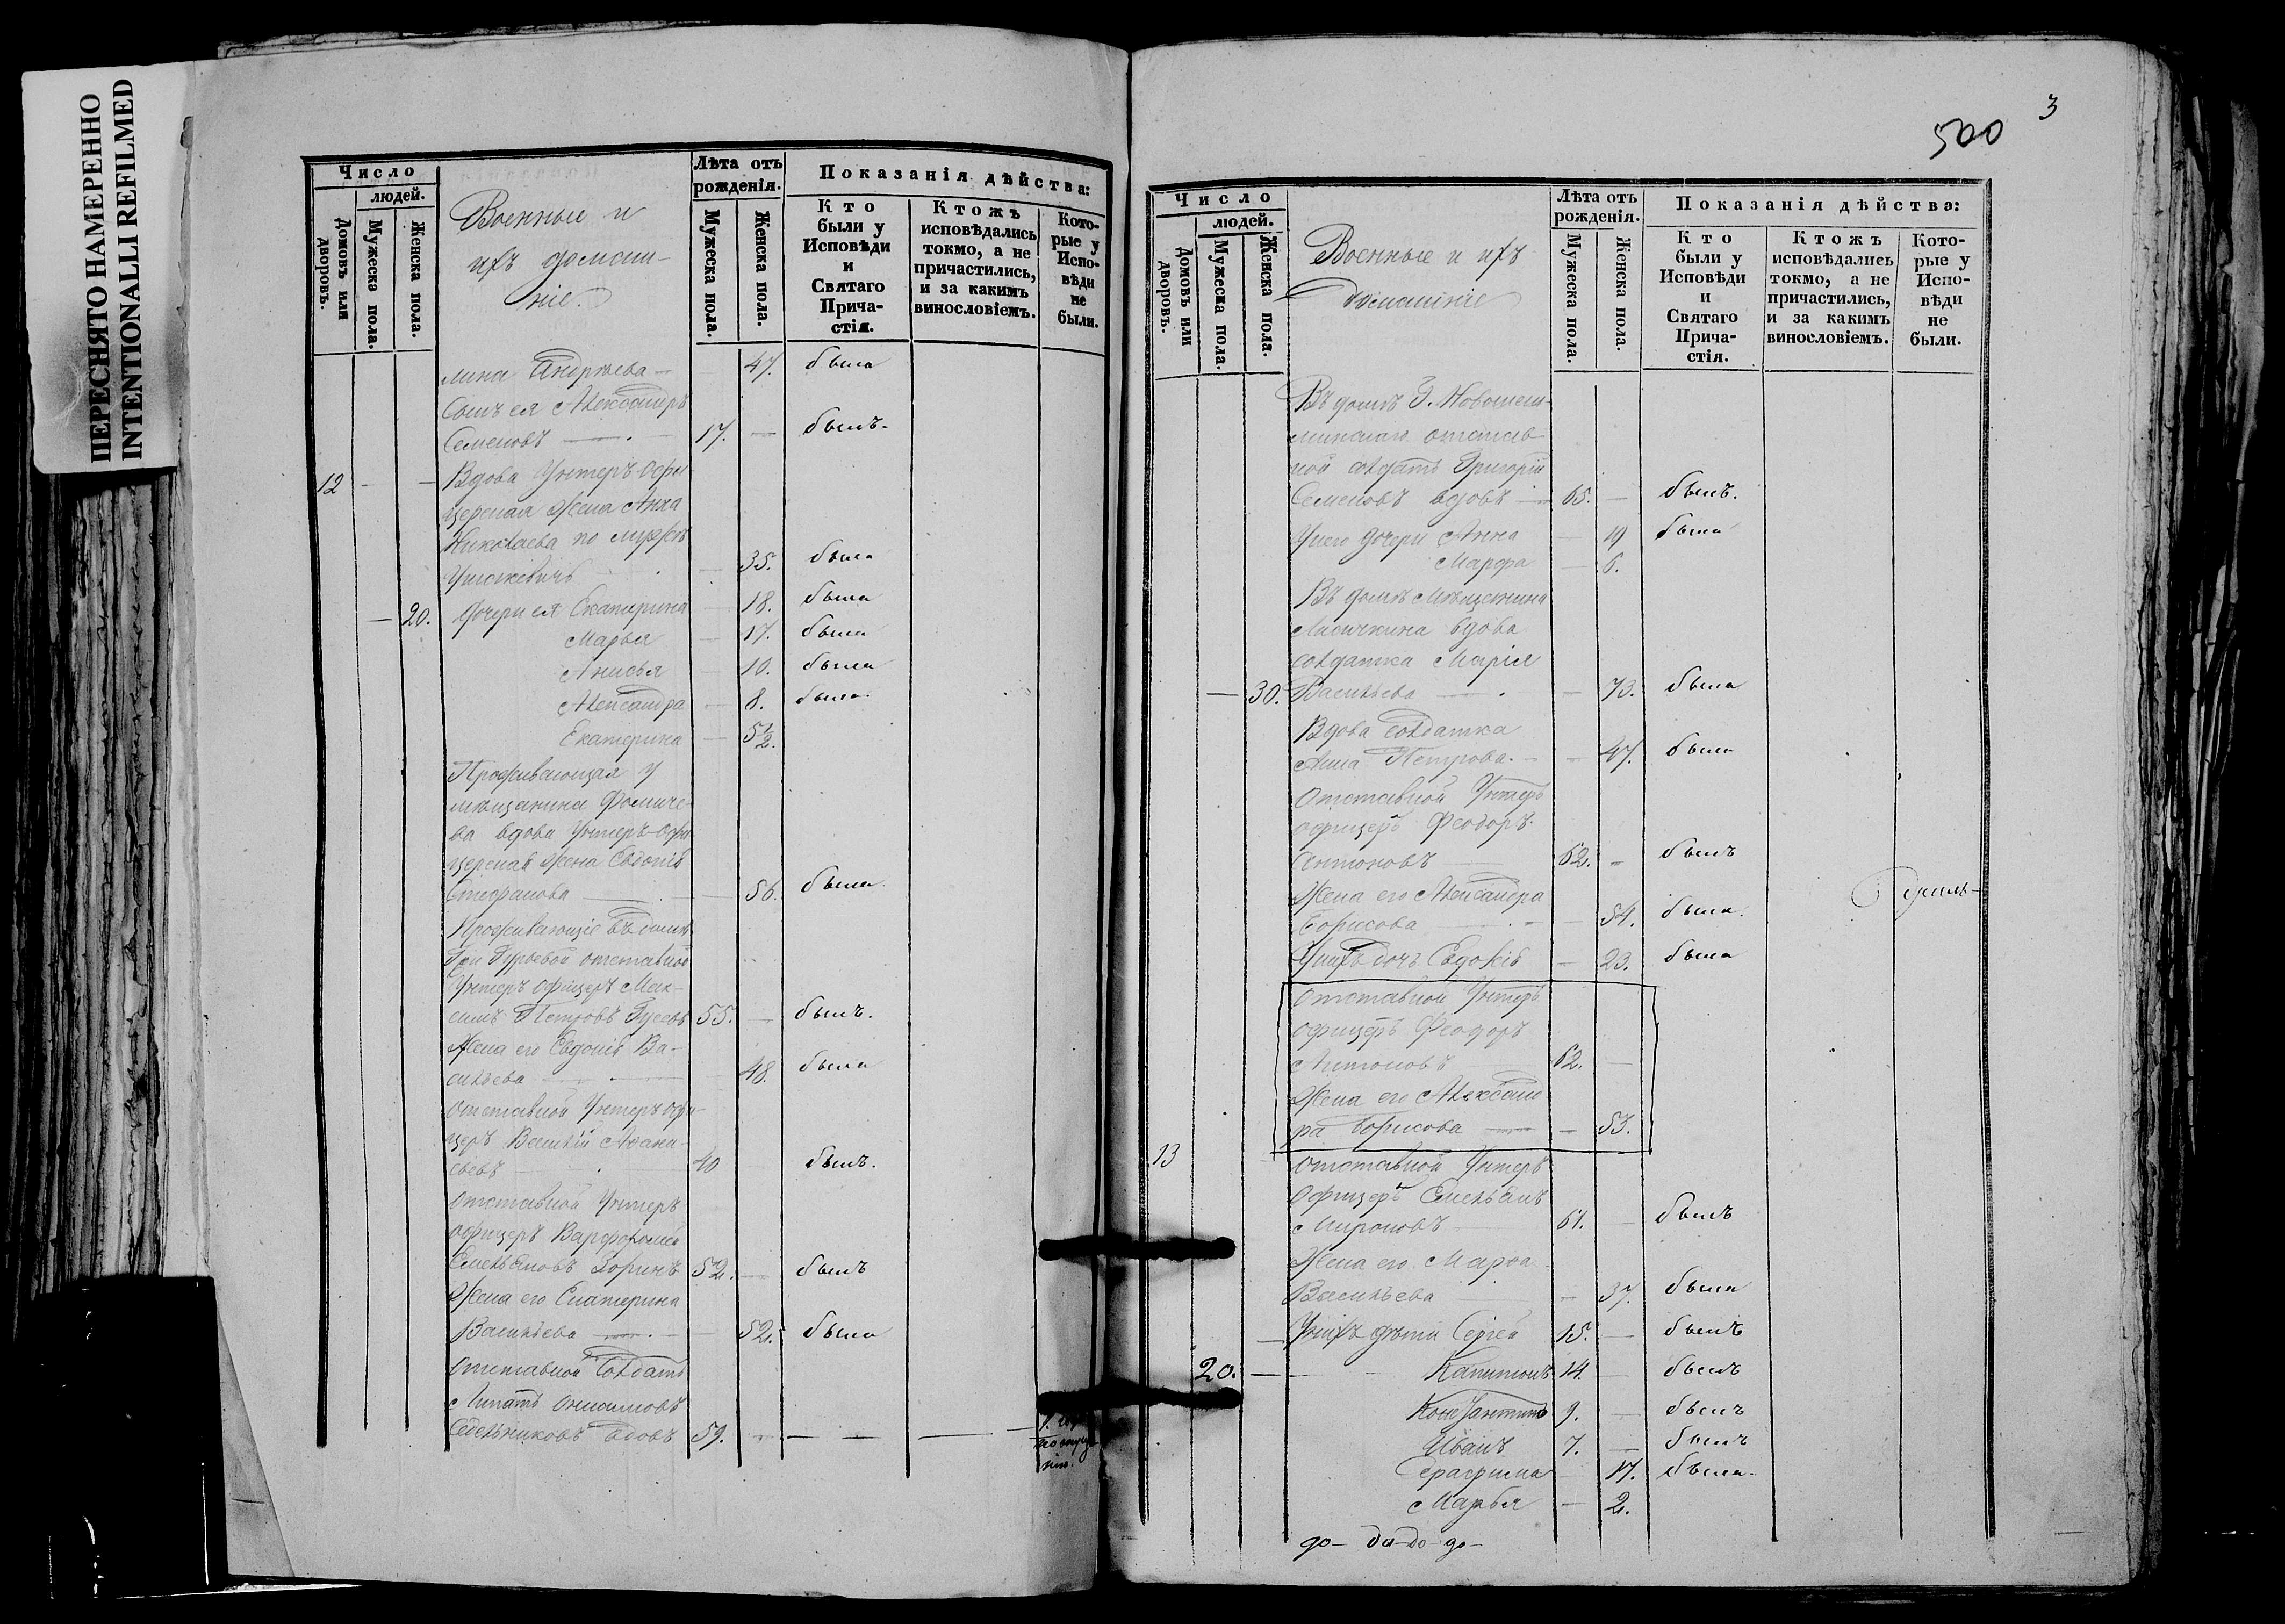 ПЕРЕСНЯТО НАМЕРЕННО
INTENTIONALLI REFILMED
Число
людей.
Домовъ или дворовъ.
Мужеска пола.
Женска пола.
Военные и
ихъ домаш-
ніе.
Лѣта отъ
рожденія.
Мужеска пола.
Женска пола.
Показанія дѣйства:
Кто
были у
Исповѣди
и
Святаго
Прича-
стія.
Ктожъ
исповѣдались
токмо, а не
причастились,
и за какимъ
винословіемъ.
Кото-
рые у
Испо-
вѣди
не
были.
лина Андрѣева — 47. была
Сынъ ея Александръ
Семеновъ — 17. — былъ.
12 — — Вдова Унтеръ-Офи
церская жена Анна
Николаева по мужѣ
35. была
— 20. Дочери ея Екатерина — 18. была
Марья — 17. была
Анисья — 10. была
Александра — 8. была.
Екатерина — 5½.
Проживающая у
мѣщанина Фомиче-
ва вдова Унтеръ-Офи
церская жена Евдокія
Стефанова — 56. была.
Проживающіе въ домѣ
отставной
Унтеръ офицеръ Мак-
симъ Петровъ Гусевъ 55. — былъ.
Жена его Евдокія Ва-
сильева — 48. была
Отставной Унтеръ офи-
церъ Василій Афана-
сьевъ — 40 былъ.
Отставной Унтеръ
офицеръ Варфоломей
Емельяновъ Зоринъ 52. — былъ
Жена его Екатерина
Васильева — 52. была
Отставной Солдатъ
Липатъ Онисимовъ
Седельниковъ вдовъ 59. — — — —
3
500
Число
людей.
Домовъ или дворовъ.
Мужеска пола.
Женска пола.
Военные и ихъ
Домашніе
Лѣта отъ
рожденія.
Мужеска пола.
Женска пола.
Показанія дѣйства:
Кто
были у
Исповѣди
и
Святаго
Прича-
стія.
Ктожъ
исповѣдались
токмо, а не
причастились,
и за какимъ
винословіемъ.
Кото-
рые у
Испо-
вѣди
не
были.
Въ домѣ
отстав-
ной солдатъ Григорій
Семеновъ вдовъ — 65. — былъ.
У него дочери Анна — 19 была
Марфа — 6.
Въ домѣ Мѣщанина
Лисичкина вдова
солдатка Марія
— 30. Васильева — — 73. была
Вдова солдатка
Анна Петрова. — — 47. была
Отставной Унтеръ
офицеръ Феодоръ
Антоновъ — 62. — былъ
Жена его Александра
Борисова — — 54. была.
У нихъ дочь Евдокія — 23. была
Отставной Унтеръ
офицеръ Феодоръ
Антоновъ 62. —
Жена его Александ
ра Борисова — — 53.
13 Отставной Унтеръ
Офицеръ Емельянъ
Мироновъ — 61. — былъ
Жена его Марфа
Васильева — 37. была
— У нихъ дѣти Сергей 15. — былъ
20. — Капитонъ 14. — былъ
Константинъ 9. — былъ
Иванъ 7. — былъ
Серафима — 17. была.
Марья — 2.
до- да-до до-